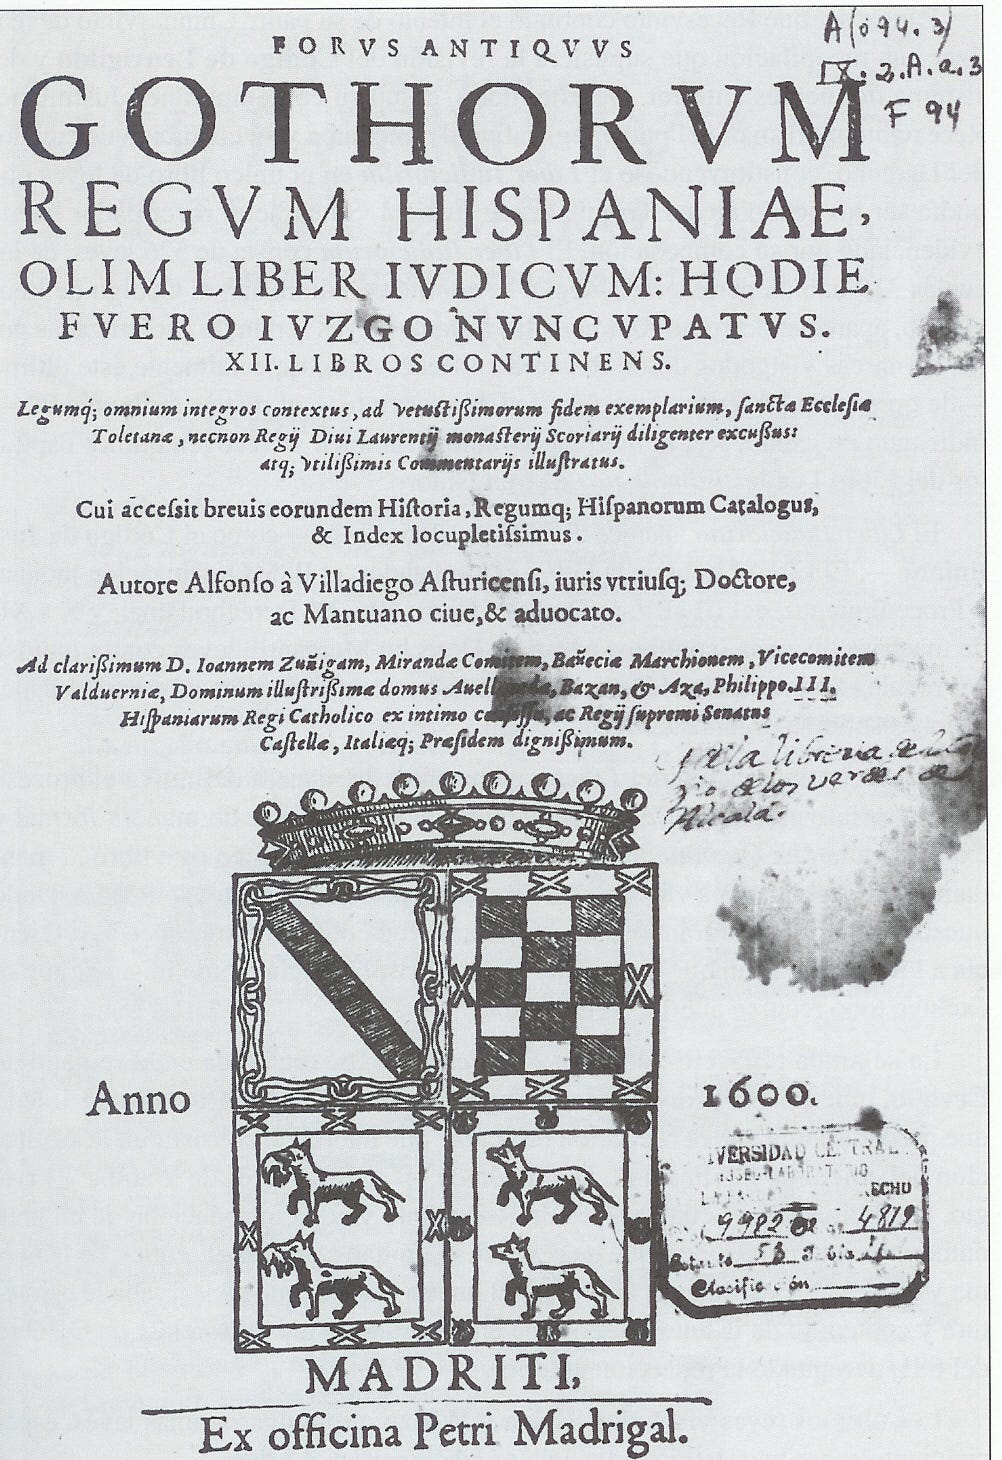 FORVS ANTIQVVS
GOTHORVM
REGVM HISPANIAE,
OLIM LIBER IVDICVM: HODIE
FVERO IVZGO NVNCVPATVS.
XII. LIBROS CONTINENS.
Legumq́; omnium integros contextus, ad vetustißimorum fidem exemplarium, ſanctæ Eccleſiæ
Toletanæ, necnon Regij Diui Laurentij monaſterij Scoriarij diligenter excußus:
atq; vtilißimis Commentarijs illuſtratus.
Cui acceſsit breuis eorundem Hiſtoria, Regumq; Hiſpanorum Catalogus,
& Index locupletiſsimus.
Autore Alfonſo à Villadiego Aſturicenſi, iuris vtriuſq; Doctore,
ac Mantuano ciue, & aduocato.
Ad clarißimum D. Ioannem Zuñigam, Mirandæ Comitem, Bañeciæ Marchionem, Vicecomitem
Valduerniæ, Dominum illuſtrißimæ domus Auellaneda, Bazan, & Aza, Philippo.III.
Hiſpaniarum Regi Catholico ex intimo conſeſſu, ac Regij ſupremi Senatus
Caſtellæ, Italiæq; Præſidem dignißimum.
A(094.3)
IX.2.A.a.3
F 94
de la libreria
de los verdes de
Alcala.
Anno 1600.
VERSIDAD CENTRAL
MUSEO-LABORATORIO
ECHO
9982 4819
Estante 53 Tabla
Clasificación
MADRITI,
Ex officina Petri Madrigal.